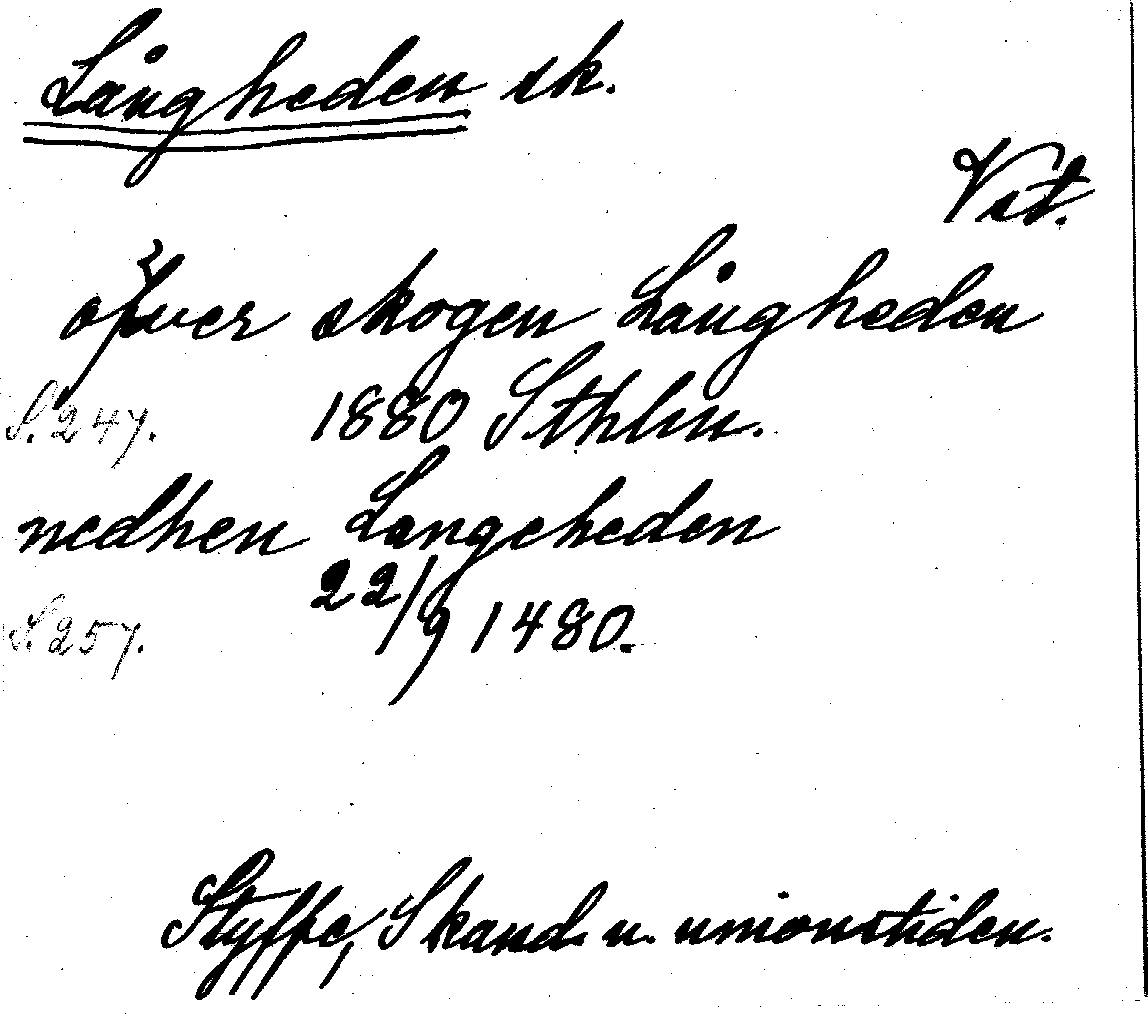 Långheden sk.
Vst.
öfver skogen Långheden
S. 247. 1880 Sthlm.
nedhen Langeheden
S. 257. 22/9 1480.
Styffe, Skand. u. unionstiden.